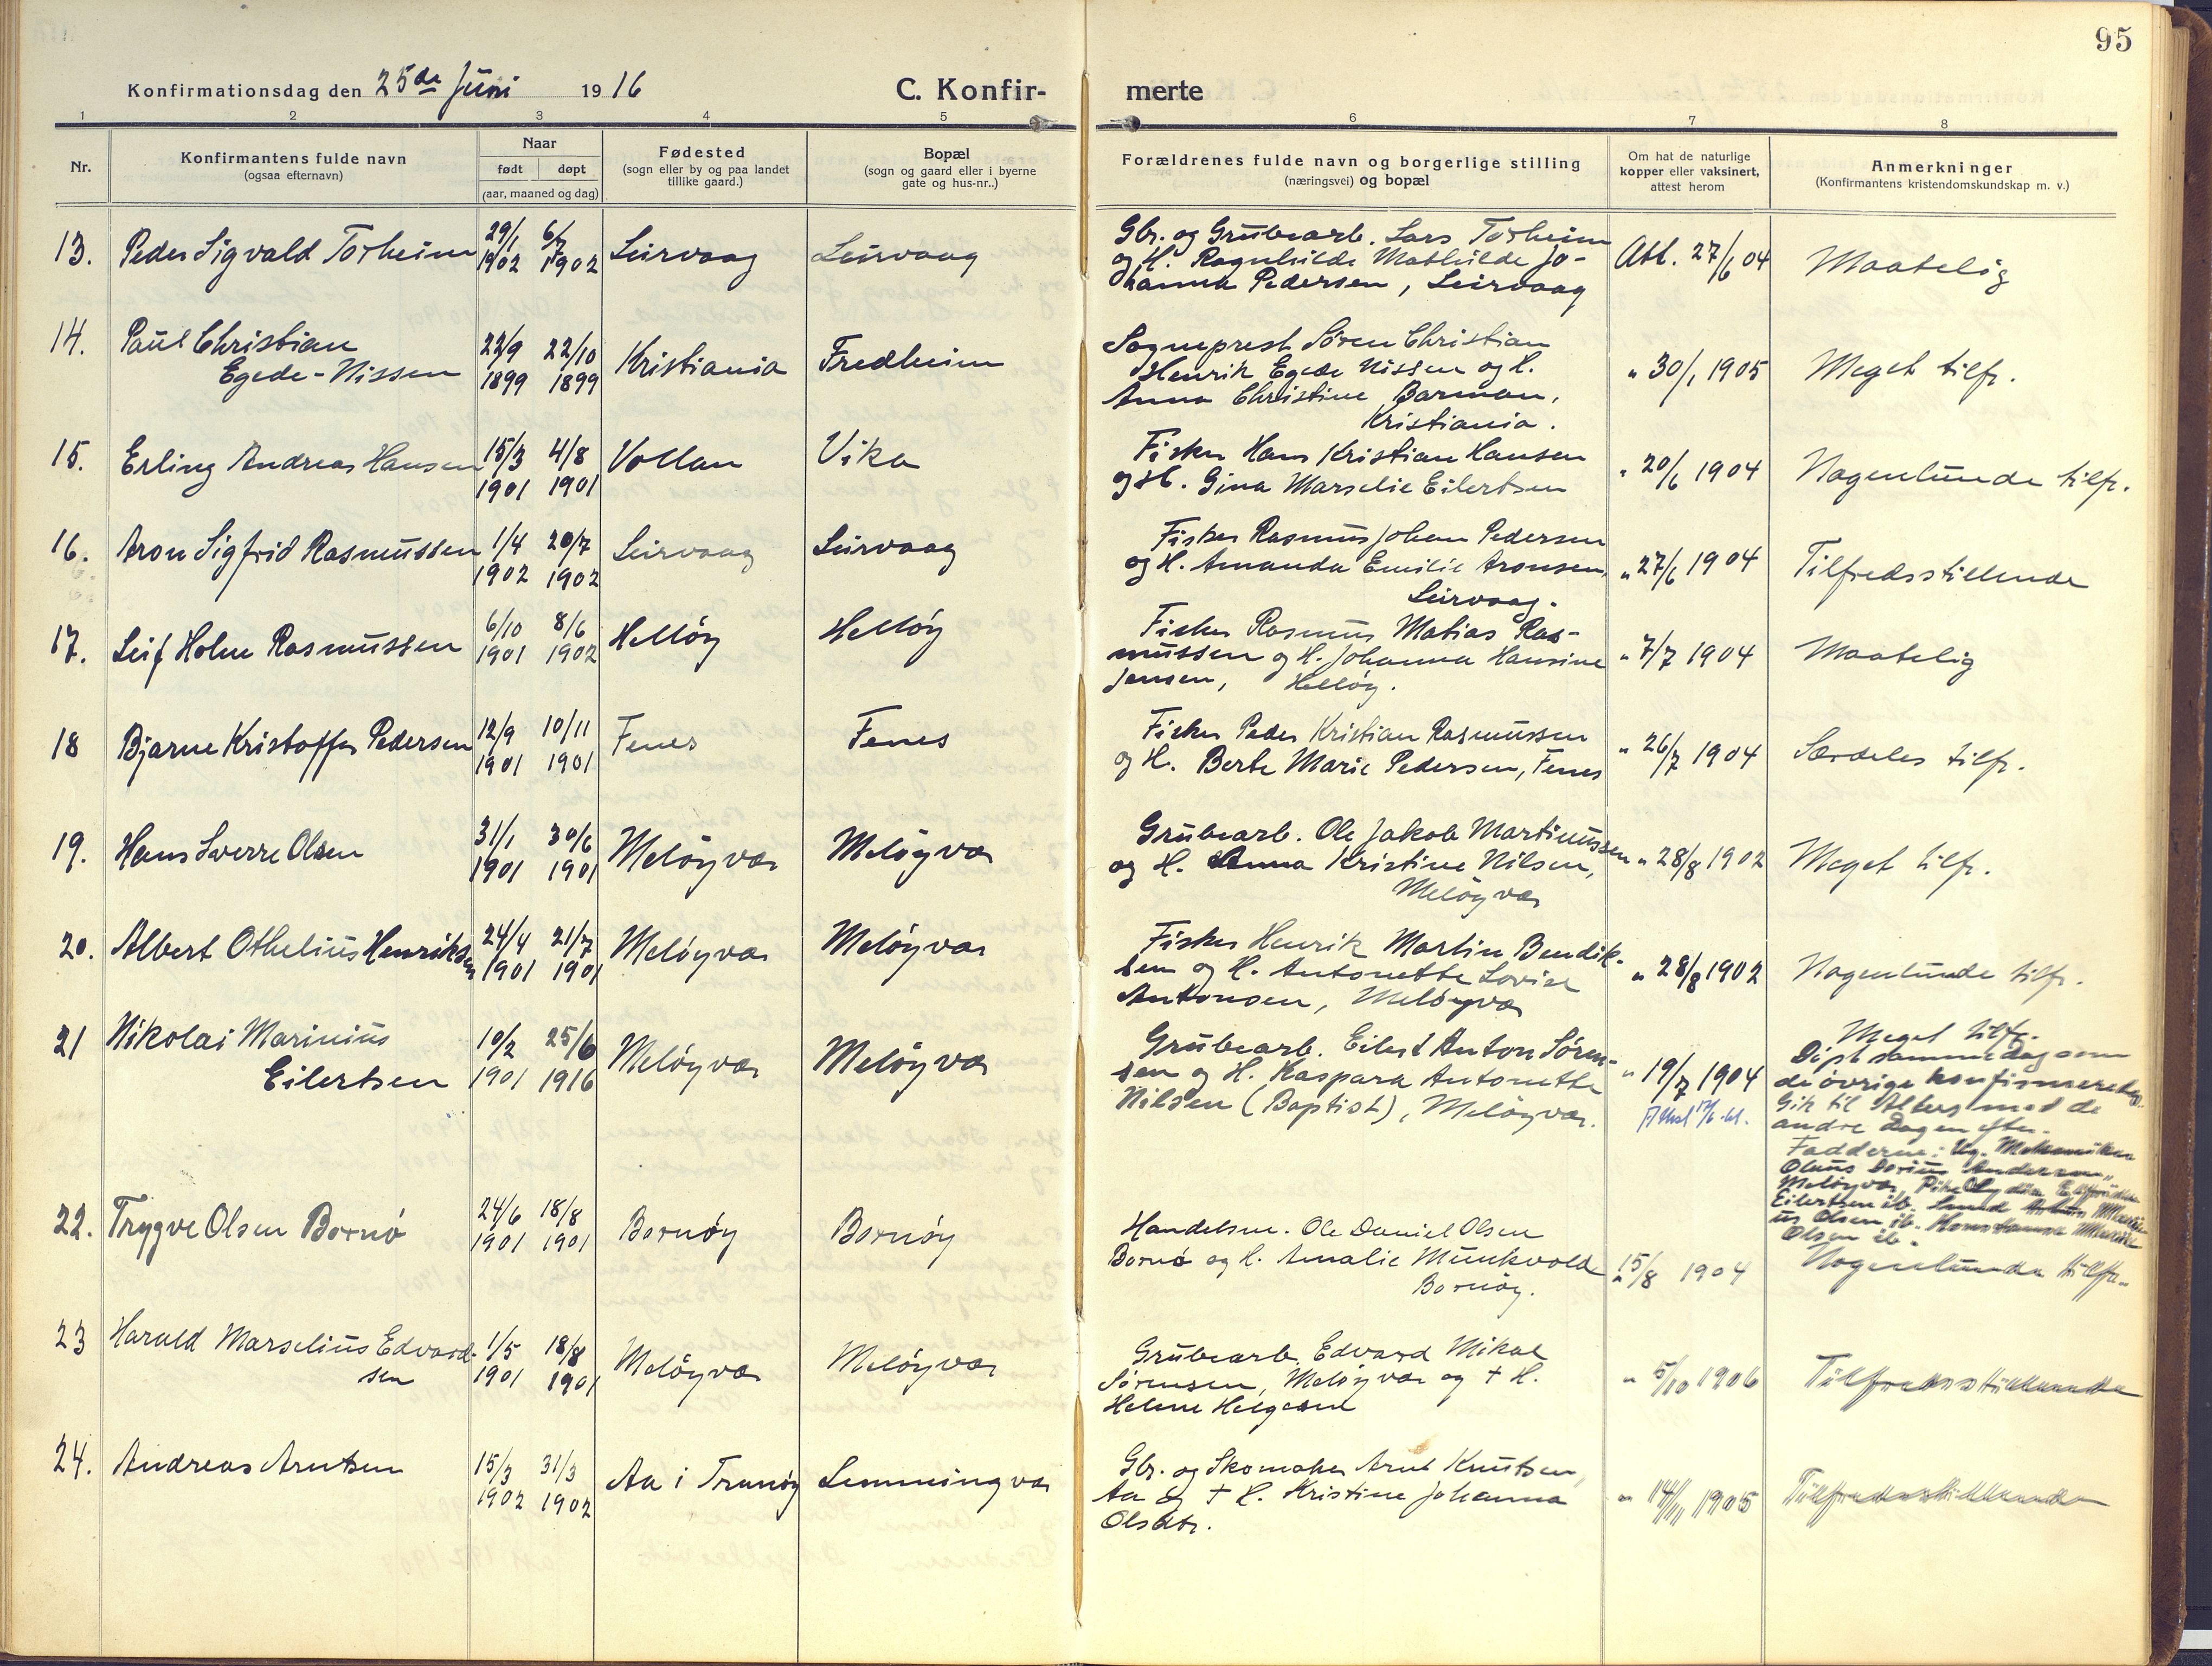 95
Konfirmationsdag den 25de Juni 1916
C. Konfir- merte
1 2 3 4 5 6 7 8
Nr.
Konfirmantens fulde navn
(ogsaa efternavn)
Naar
født døpt
(aar, maaned og dag)
Fødested
(sogn eller by og paa landet
tillike gaard.)
Bopæl
(sogn og gaard eller i byerne
gate og hus-nr..)
Forældrenes fulde navn og borgerlige stilling
(næringsvei) og bopæl
Om hat de naturlige
kopper eller vaksinert,
attest herom
Anmerkninger
(Konfirmantens kristendomskundskap m. v.)
13. Peder Sigvald Torheim
29/1 1902
6/7 1902
Leirvaag
Leirvaag
Gbr. og Grubearb. Lars Torheim
og H. Ragnhilde Mathilde Jo-
hanna Pedersen, Leirvaag
Att. 27/6 04
Maatelig
14. Paul Christian
Egede-Nissen
22/9 1899
22/10 1899
Kristiania
Fredheim
Sogneprest Søren Christian
Henrik Egede Nissen og H.
Anna Christine Barman,
Kristiania.
" 30/1 1905
Meget tilfr.
15. Erling Andreas Hansen
15/3 1901
4/8 1901
Vollan
Vika
Fisker Hans Kristian Hansen
og H. Gina Marselie Eilertsen
" 20/6 1904
Nogenlunde tilfr.
16. Aron Sigfrid Rasmussen
1/4 1902
20/7 1902
Leirvaag
Leirvaag
Fisker Rasmus Johan Pedersen
og H. Amanda Emilie Aronsen,
Leirvaag.
" 27/6 1904
Tilfredsstillende
17. Leif Holm Rasmussen
6/10 1901
8/6 1902
Helløy
Helløy
Fisker Rasmus Matias Ras-
mussen og H. Johanna Hansine
Jensen, Helløy.
" 7/7 1904
Maatelig
18 Bjarne Kristoffer Pedersen
12/9 1901
10/11 1901
Fenes
Fenes
Fisker Peder Kristian Rasmussen
og H. Berte Marie Pedersen, Fenes
" 26/7 1904
Særdeles tilfr.
19. Hans Sverre Olsen
31/1 1901
30/6 1901
Meløyvær
Meløyvær
Grubearb. Ole Jakob Martinussen
og H. Anna Kristine Nilsen,
Meløyvær
" 28/8 1902
Meget tilfr.
20. Albert Othelius Henriksen
24/4 1901
21/7 1901
Meløyvær
Meløyvær
Fisker Henrik Martin Bendik-
sen og H. Antonette Lovise
Antonsen, Meløyvær
" 28/8 1902
Nogenlunde tilfr.
21 Nikolai Marinius
Eilertsen
10/2 1901
25/6 1916
Meløyvær
Meløyvær
Grubearb. Eilert Anton Søren-
sen og H. Kaspara Antonette
Nilsen (Baptist), Meløyvær.
" 19/7 1904
Meget tilfr.
Døpt samme dag som
de øvrige konfirmerede.
Gik til Alters med de
andre dagen efter.
Fadderne: Ug.
Olaus Dorius Andersen,
Meløyvær, Pike
Eilertsen ib.
Olsen ib.
Olsen ib.
22. Trygve Olsen Bornø
24/6 1901
18/8 1901
Bornøy
Bornøy
Handelsm. Ole Daniel Olsen
Bornø og H. Amalie Munkvold
Bornøy.
" 15/8 1904
Nogenlunde tilfr.
23 Harald Marselius Edvard-
sen
1/5 1901
18/8 1901
Meløyvær
Meløyvær
Grubearb. Edvard Mikal
Sørensen, Meløyvær og † H.
Helene Helgesen
" 5/10 1906
Tilfredsstillende
24. Andreas Arntsen
15/3 1902
31/3 1902
Aa i Tranøy
Lemmingvær
Gbr. og Skomaker Arnt Knutsen,
Aa og † H. Kristine Johanna
Olsdtr.
" 14/11 1905
Tilfredsstillende